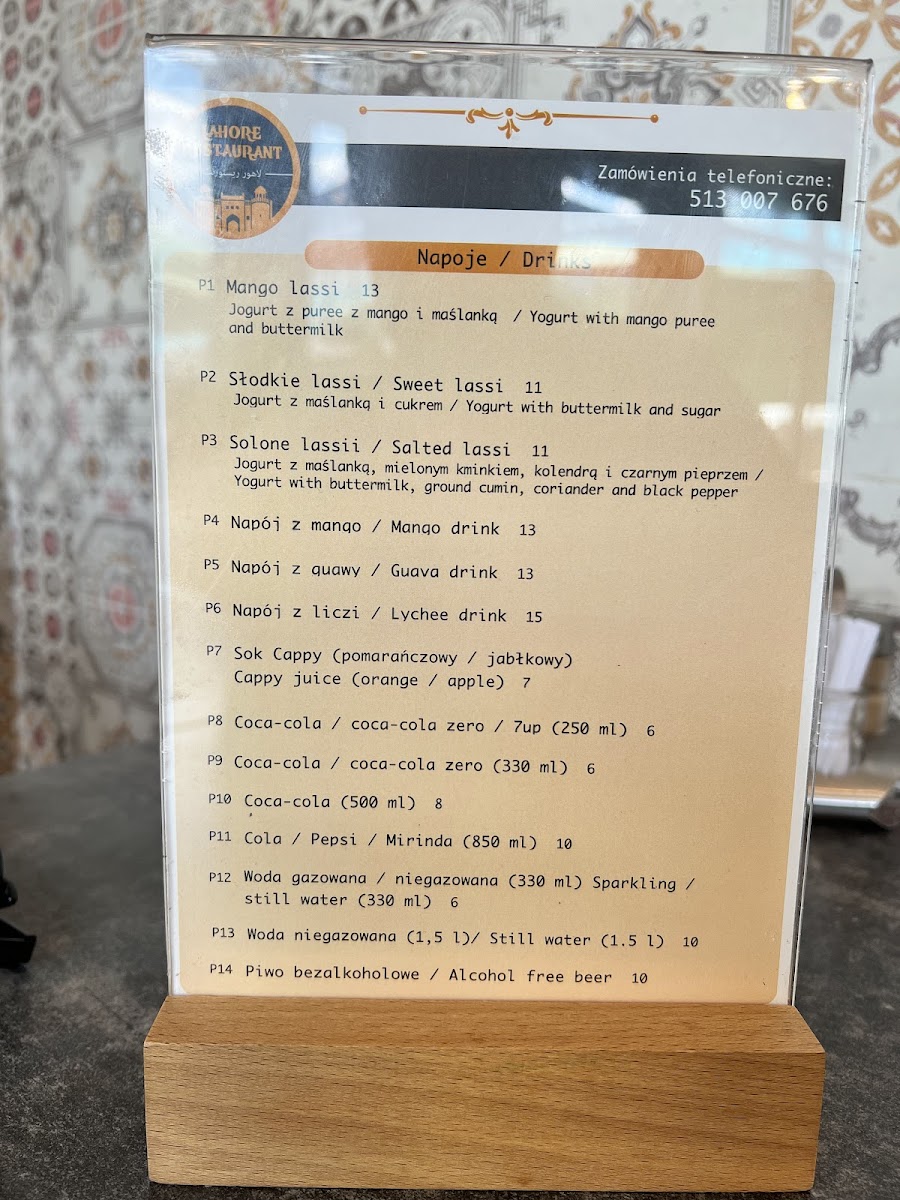 LAHORE
RESTAURANT
لاهور ریسٹورنٹ
Zamówienia telefoniczne:
513 007 676
Napoje / Drinks
P1 Mango lassi 13
Jogurt z puree z mango i maślanką / Yogurt with mango puree
and buttermilk
P2 Słodkie lassi / Sweet lassi 11
Jogurt z maślanką i cukrem / Yogurt with buttermilk and sugar
P3 Solone lassii / Salted lassi 11
Jogurt z maślanką, mielonym kminkiem, kolendrą i czarnym pieprzem /
Yogurt with buttermilk, ground cumin, coriander and black pepper
P4 Napój z mango / Mango drink 13
P5 Napój z guawy / Guava drink 13
P6 Napój z liczi / Lychee drink 15
P7 Sok Cappy (pomarańczowy / jabłkowy)
Cappy juice (orange / apple) 7
P8 Coca-cola / coca-cola zero / 7up (250 ml) 6
P9 Coca-cola / coca-cola zero (330 ml) 6
P10 Coca-cola (500 ml) 8
P11 Cola / Pepsi / Mirinda (850 ml) 10
P12 Woda gazowana / niegazowana (330 ml) Sparkling /
still water (330 ml) 6
P13 Woda niegazowana (1,5 l)/ Still water (1.5 l) 10
P14 Piwo bezalkoholowe / Alcohol free beer 10